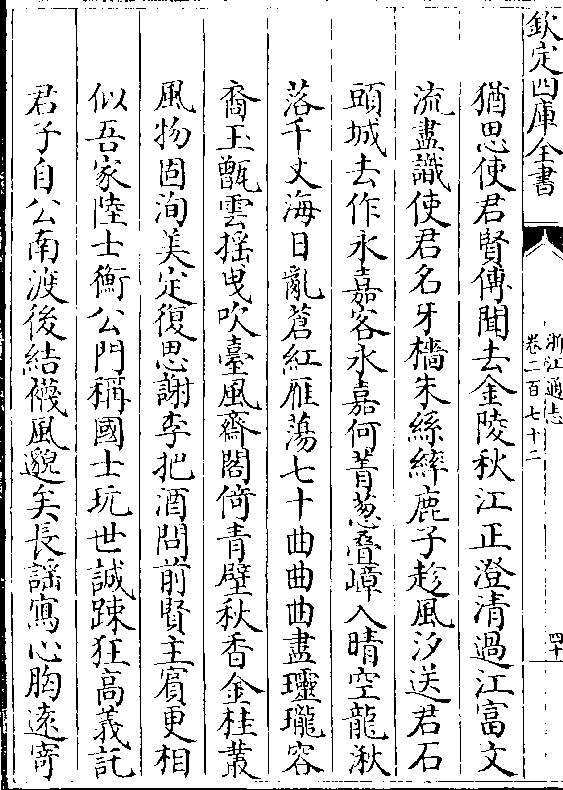 欽定四庫全書
浙江通志
卷二百七十二
四十
猶思使君賢傳聞去金陵秋江正澄清過江富文
流盡識使君名牙檣朱絲繂鹿子趁風汐送君石
頭城去作永嘉客永嘉何菁葱疊嶂入晴空龍湫
落千丈海日亂蒼紅雁蕩七十曲曲曲盡瓏瓏容
裔玉甑雲摇曳吹臺風齋閣倚青壁秋香金桂叢
風物固洵美定復思謝李把酒問前賢主賓更相
似吾家陸士衡公門稱國士玩世誠踈狂高義託
君子自公南渡後結襪風邈矣長謡寫心胸遠寄